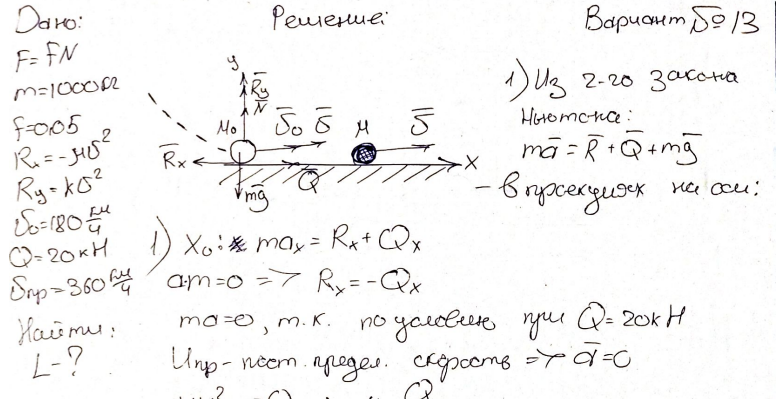 Дано:
F = fN
m=1000 кг
f=0,05
Rx = -μυ²
Ry = kυ²
υ₀=180 км/ч
Q=20кН
υпр=360 км/ч
Найти:
L-?
Решение:
Вариант №13
y
R̅y
N̅
M₀
υ̅₀
υ̅
M
υ̅
R̅x
Q̅
x
mg̅
1) Из 2-го закона
Ньютона:
ma̅ = R̅ + Q̅ + mg̅
- в проекциях на оси:
1) X₀: max = Rx + Qx
a·m=0 => Rx = -Qx
ma=0, т.к. по условию при Q=20кН
Uпр- пост. предел. скорость => a̅=0